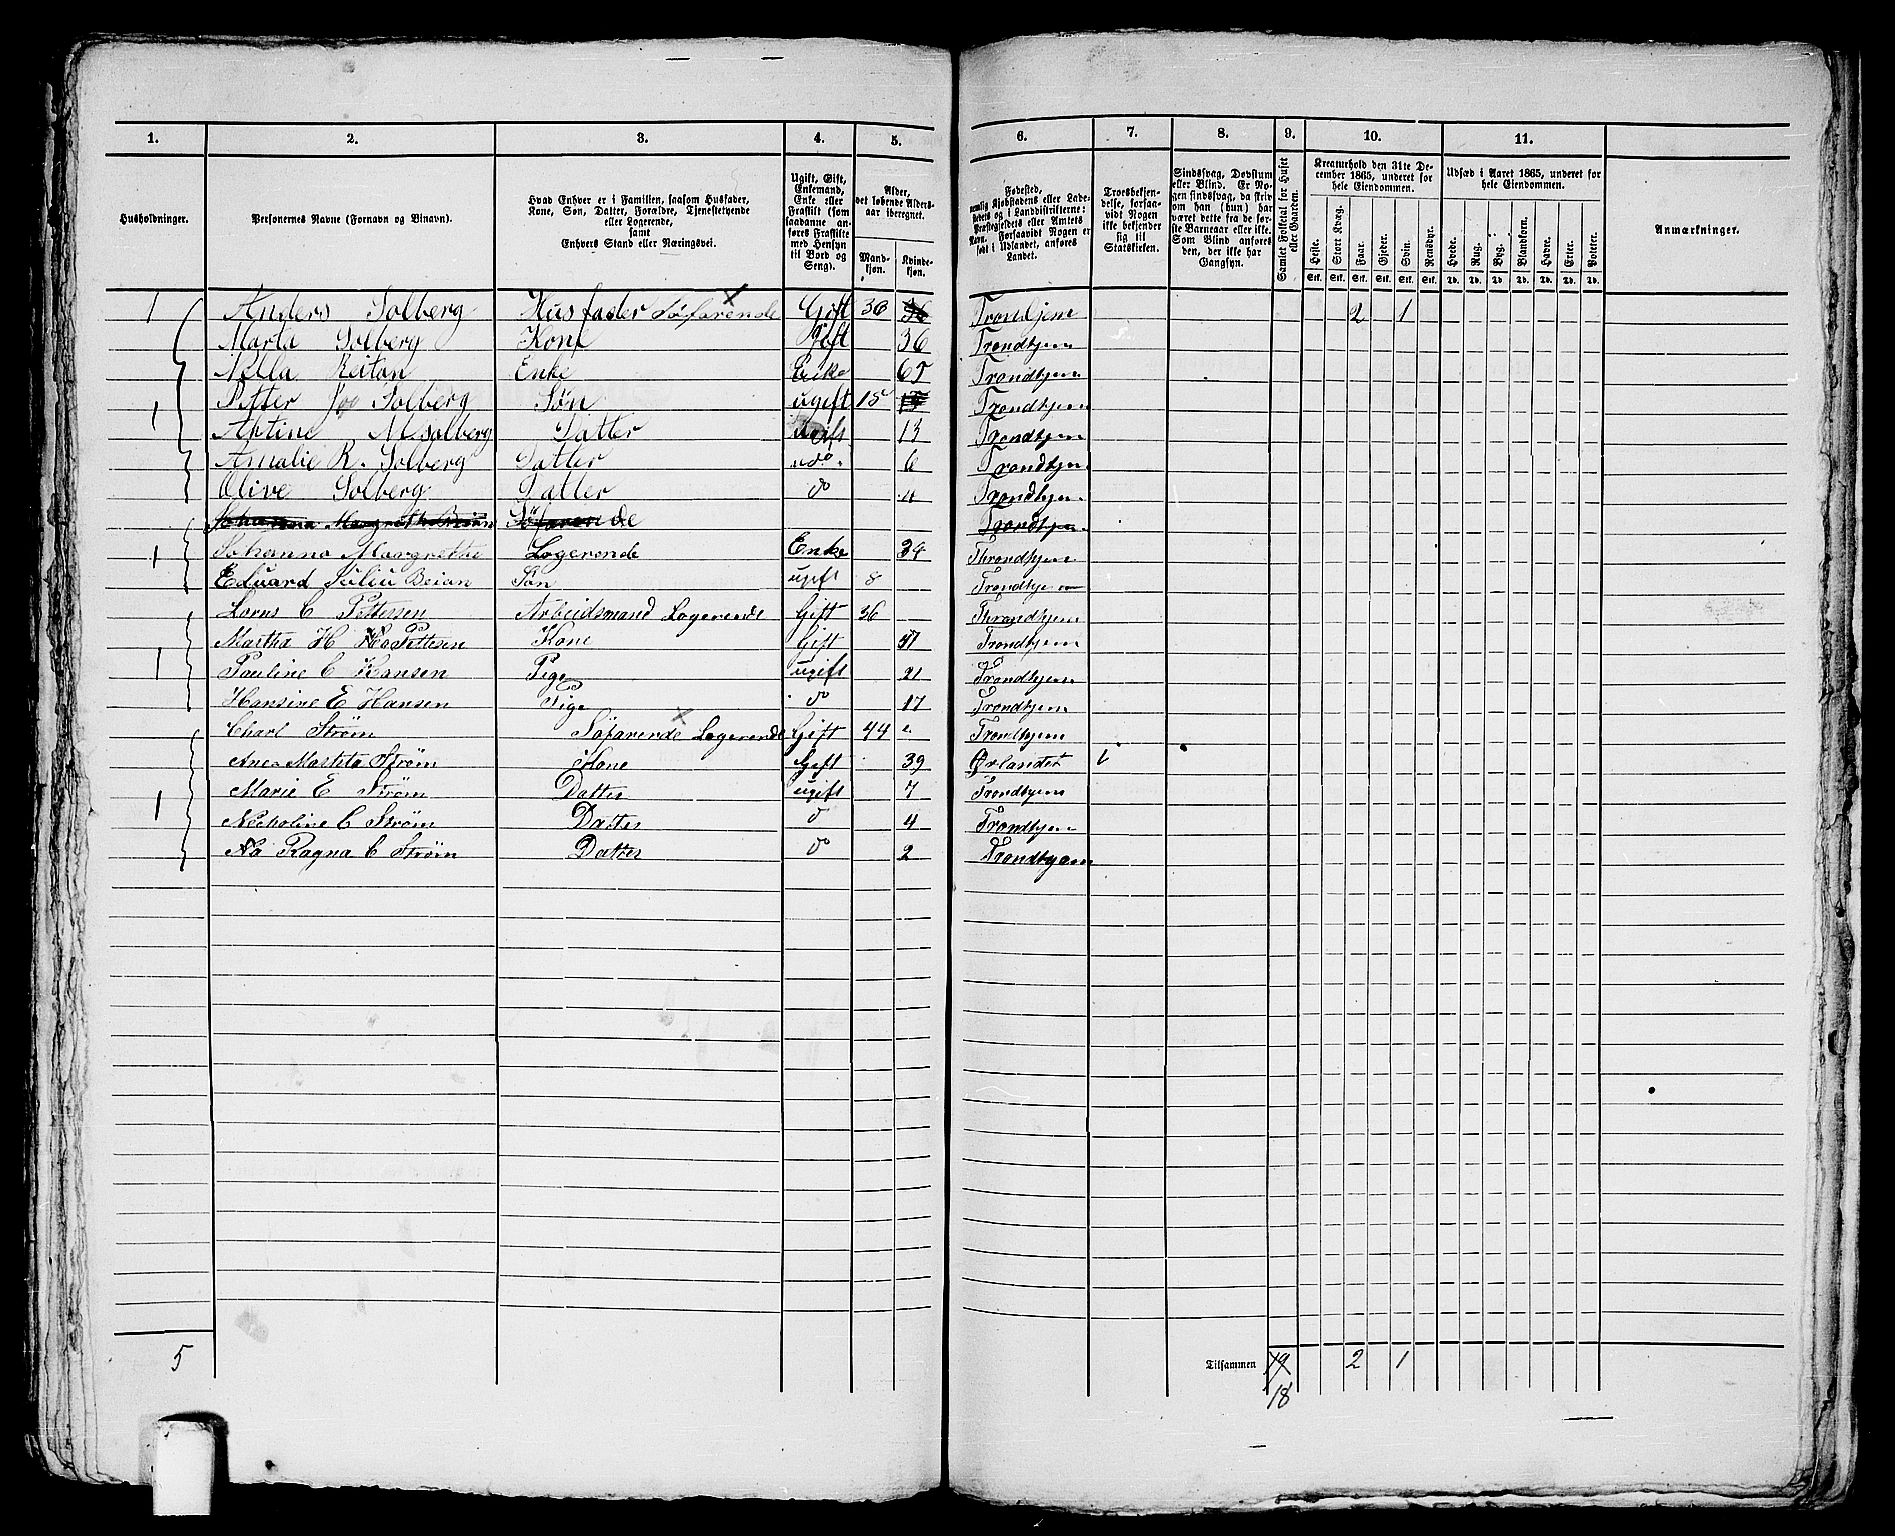 1. 2. 3. 4. 5. 6. 7. 8. 9. 10. 11.
Husholdninger.
Personernes Navne (Fornavn og Binavn).
Hvad Enhver er i Familien, saasom Husfader,
Kone, Søn, Datter, Forældre, Tjenestetyende
eller Logerende,
samt
Enhvers Stand eller Næringsvei.
Ugift, Gift,
Enkemand,
Enke eller
Fraskilt (som
saadanne an-
føres Fraskilte
med Hensyn
til Bord og
Seng).
Alder,
det løbende Alders-
aar iberegnet.
Mand-
kjøn.
Kvinde-
kjøn.
Fødested,
nemlig Kjøbstadens eller Lade-
stedets og i Landdistrikterne:
Præstegjeldets eller Amtets
Navn. Forsaavidt Nogen er
født i Udlandet, anføres
Landet.
Troesbekjen-
delse, forsaa-
vidt Nogen
ikke bekjender
sig til
Statskirken.
Sindssvag, Døvstum
eller Blind. Er No-
gen sindssvag, da skriv
om han (hun) har
været dette fra de før-
ste Barneaar eller ikke.
Som Blind anføres
den, der ikke har
Gangsyn.
Samlet Folketal for Huset
eller Gaarden.
Kreaturhold den 31te De-
cember 1865, underet for
hele Eiendommen.
Heste. Stort Kvæg. Faar. Gjeder. Svin. Rensdyr.
Stk. Stk. Stk. Stk. Stk. Stk.
Udsæd i Aaret 1865, underet for
hele Eiendommen.
Hvede. Rug. Byg. Blandkorn. Havre. Erter. Poteter.
Td. Td. Td. Td. Td. Td. Td.
Anmærkninger.
1 Anders Solberg Husfader Søfarende Gift 36 Trondhjem 2 1
Marta Solberg Kone Gift 36 Trondhjem
Nella Reitan Enke Enke 65 Trondhjem
1 Petter Solberg Søn ugift 15 Trondhjem
Antine M Solberg Datter ugift 13 Trondhjem
Amalie R. Solberg Datter do 6 Trondhjem
Olive Solberg Datter do Trondhjem
Johanna Margrethe Beian Søfarende Trondhjem
1 Johanna Margrethe Logerende Enke 34 Throndhjem
Eduard Juliu Beian Søn ugift 8 Trondhjem
Lorns C Pettersen Arbeidsmand Logerende Gift 36 Throndhjem
Martha H Pettesen Kone Gift Trondhjem
1 Pauline C Hansen Pige ugift 21 Trondhjem
Hansine E Hansen Pige do 17 Trondhjem
Charl Strøm Søfarende Logerende Gift 44 Trondhjem
Ane Martita Strøm Kone Gift 39 Ørlandet
1 Marie E Strøm Datter ugift 7 Trondhjem
Nicholine C Strøm Datter do 4 Trondhjem
Ragna C Strøm Datter do 2 Trondhjem
5 Tilsammen 19 2 1
18